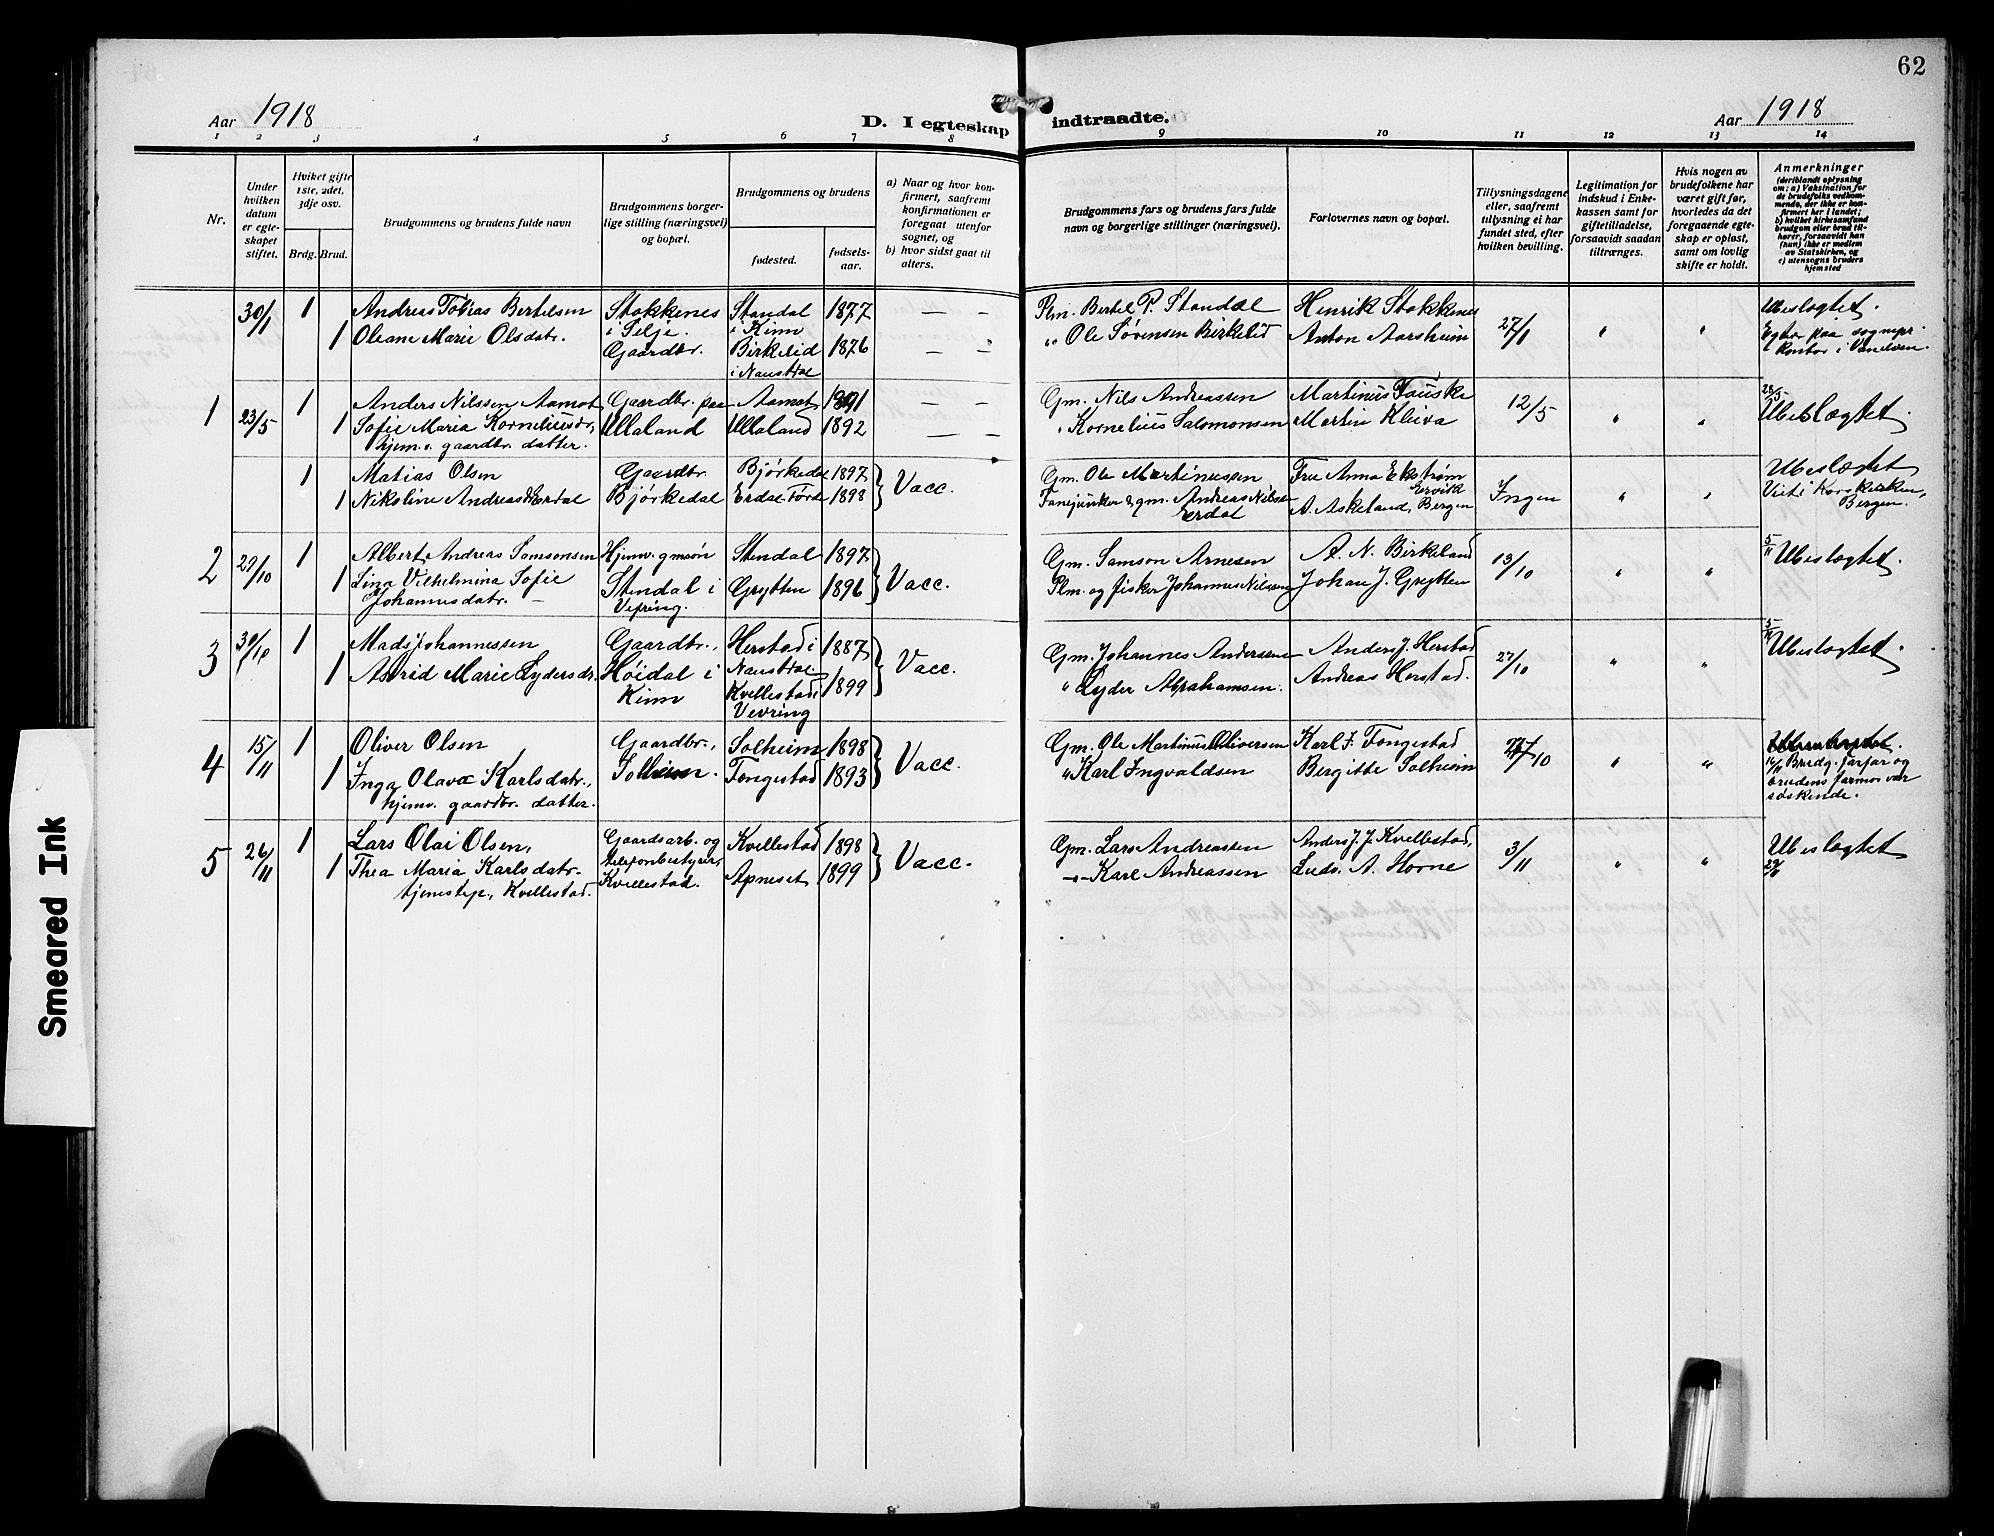 62
Aar 1918
D. I egteskap indtraadte.
Aar 1918
1 2 3 4 5 6 7 8 9 10 11 12 13 14
Nr.
Under hvilken datum er egteskapet stiftet.
Hviket gifte 1ste, 2det, 3dje osv.
Brdg. Brud.
Brudgommens og brudens fulde navn
Brudgommens borgerlige stilling (næringsvei) og bopæl.
Brudgommens og brudens
fødested.
fødselsaar.
a) Naar og hvor konfirmert, saafremt konfirmationen er foregaat utenfor sognet, og
b) hvor sidst gaat til alters.
Brudgommens fars og brudens fars fulde navn og borgerlige stillinger (næringsvei).
Forlovernes navn og bopæl.
Tillysningsdagene eller, saafremt tillysning ei har fundet sted, efter hvilken bevilling.
Legitimation for indskud i Enkekassen samt for giftetilladelse, forsaavidt saadan tiltrænges.
Hvis nogen av brudefolkene har været gift før, hvorledes da det foregaaende egteskap er opløst, samt om lovlig skifte er holdt.
Anmerkninger
(deriblandt oplysning om: a) Vaksination for de brudefolks vedkommende, der ikke er konfirmert her i landet; b) hvilket kirkesamfund brudgom eller brud tilhører, forsaavidt han (hun) ikke er medlem av Statskirken, og c) utensogns bruders hjemsted
30/1 1 Andreas Tobias Bertelsen Stokkenes Standal 1877 — — Plm. Bertel P. Standal Henrik Stokkenes 27/1 " " Ubeslegtet.
1 Oleane Marie Olsdatr. i Selje. i Kinn " Ole Sørensen Birkelid Anton Aarsheim Egtev. paa sognepr.
Gaardbr. Birkelid 1876 — — kontor i Vanelven.
i Naustdal
1 23/5 1 Anders Nilssen Aamot Gaardbr. paa Aamot 1891 — — Gm. Nils Andreassen Martinus Fauske 12/5 " " 28/5
1 Sofie Maria Korneliusdr., Ullaland Ullaland 1892 — — " Kornelius Salomonsen Martin Kleiva Ubeslægtet.
hjem. gaardbr. datter.
1 Matias Olsen Gaardbr. Bjørkedal 1897 Vacc. Gm. Ole Martinussen Fru Anna Ekstrøm Ingen " " Ubeslægtet
1 Nikoline Andreasd. Erdal Bjørkedal Erdal Førde 1898 Fanejunker & gm. Andreas Nilssen Erdal A. Askeland, Bergen Viet i Korskirken, Bergen.
2 29/10 1 Albert Andreas Samsonsen Hjemv. gmsøn Stendal 1897 Vacc. Gm. Samson Arnesen A. N. Birkeland 13/10 " " 5/11 Ubeslægtet.
1 Lina Vilhelmina Sofie Stendal i Grytten 1896 Plm. og fisker Johannes Nilssen Johan J. Grytten
Johannesdatr. — Vefring.
3 30/10 1 Mads Johannessen Gaardbr., Herstad i 1887 Vacc. Gm. Johannes Anderssen Anders J. Herstad 27/10 " " 5/11 Ubeslægtet.
1 Astrid Marie Lydersdr. Høidal i Naustdal " Lyder Abrahamsen. Andreas Herstad.
Kinn Kvellestad i 1899
Vevring
4 15/11 1 Oliver Olsen Gaardbr., Solheim 1898 Vacc. Gm. Ole Martinus Oliversen Karl J. Fongestad 27/10 " "
1 Inga Olava Karlsdatr., Solheim. Fongestad 1893 " Karl Ingvaldsen Bergitte Solheim 16/11 Brudg. farfar og
hjemv. gaardbr. datter. brudens farmor var
søskende.
5 26/11 1 Lars Olai Olsen, Gaardsarb. og Kvellestad 1898 Vacc. Gm. Lars Andreassen Anders J. J. Kvellestad, 3/11 " " Ubeslægtet
1 Thea Maria Karlsdatr. telefonbestyrer, Apneset 1899 -"- Karl Andreassen Ludv. A. Horne
tjenestep., Kvellestad. Kvellestad.
Smeared Ink